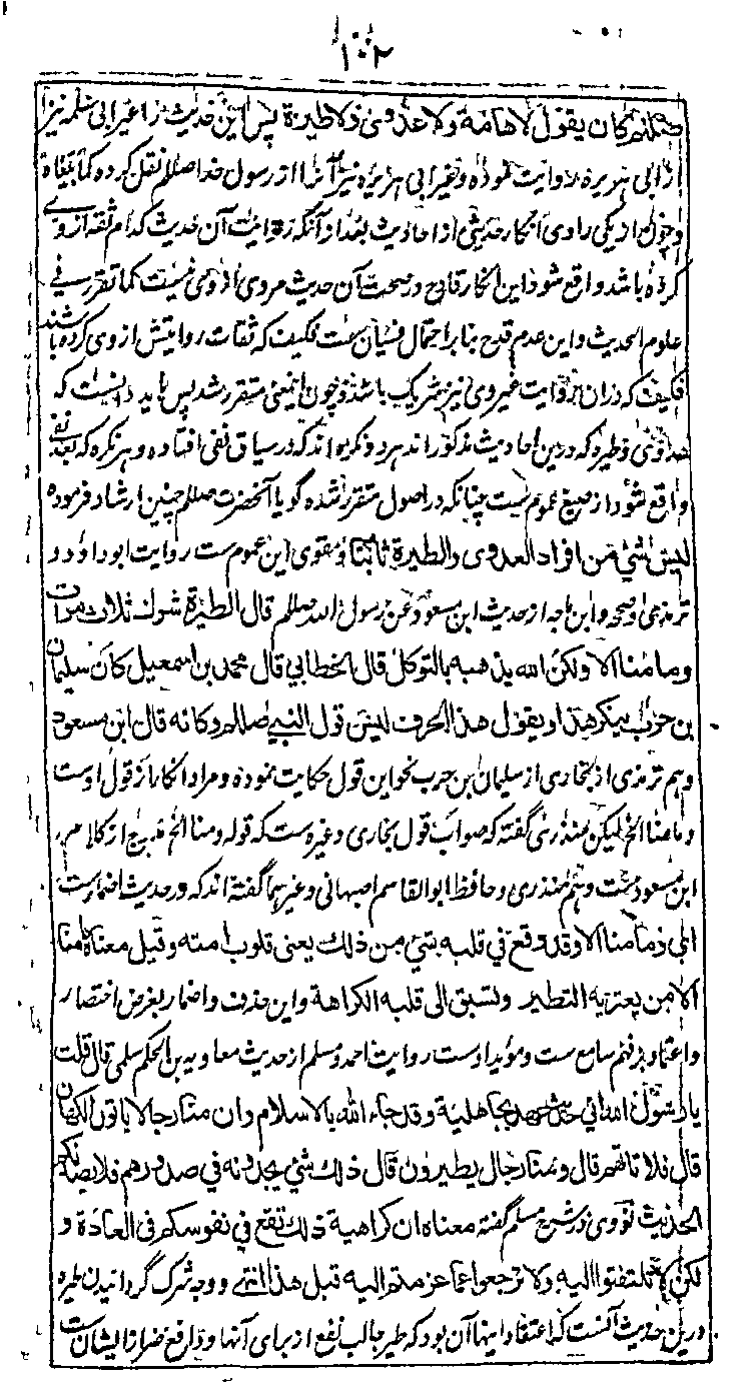 ١٠٢
صللم كان يقول لا هامة ولا عدوى ولا طيرة پس این حدیث را غیر ابی سلمه نیز
از ابی هریره روایت نموده و غیر ابی هریره نیز آنرا از رسول خدا صللم نقل کرده کما بیناه
و چون از یکی راوی انکار حدیثی از احادیث بعد از آنکه روایت آن حدیث کدام ثقه از وے
کرده باشد واقع شود این انکار قادح در صحت آن حدیث مروی از وی نیست کما تقرر فی
علوم الحدیث و این عدم قدح بنا بر احتمال نسیان ست فکیف که ثقات روایتش از وی کرده باشند
فکیف که دران روایت غیر وی نیز شریک باشد و چون اینمعنی متقرر شد پس باید دانست که
عدوی و طیره که درین احادیث مذکور اند هر دو نکره اند که در سیاق نفی افتاده و هر نکره که بعد نفی
واقع شود از صیغ عموم ست چنانکه در اصول متقرر شده گویا آنحضرت صللم چنین ارشاد فرموده
لیس شیء من افراد العدوی والطیرة ثابتا و مقوی این عموم ست روایت ابو داود و
ترمذی وصححه و ابن ماجه از حدیث ابن مسعود عن رسول الله صللم قال الطیرة شرك ثلاث مرات
وما منا الا ولكن الله یذهبه بالتوکل قال الخطابی قال محمد بن اسمعیل کان سلیمان
بن حرب ینکر هذا و یقول هذا الحرف لیس قول النبی صللم وکانه قال ابن مسعود
و هم ترمذی از بخاری از سلیمان بن حرب نحو این قول حکایت نموده و مراد انکار از قول اوست
وما منا الخ لیکن منذری گفته که صواب قول بخاری و غیره ست که قوله وما منا الخ مدرج از کلام
ابن مسعود ست و هم منذری و حافظ ابو القاسم اصبهانی و غیرهما گفته اند که در حدیث اضمار ست
ای وما منا الا وقد وقع فی قلبه شیء من ذلك یعنی قلوب امته وقیل معناه ما منا
الا من یعتریه التطیر وتسبق الی قلبه الکراهة و این حذف و اضمار بغرض اختصار
و اعتماد بر فهم سامع ست و مؤید اوست روایت احمد و مسلم از حدیث معاویه بن الحکم سلمی قال قلت
یا رسول الله انی حدیث عهد بجاهلیة وقد جاء الله بالاسلام وان منا رجالا یاتون الکهان
قال فلا تاتهم قال ومنا رجال یطیرون قال ذلك شیء یجدونه فی صدورهم فلا یصدنکم
الحدیث نووی در شرح مسلم گفته معناه ان کراهیة ذلك تقع فی نفوسکم فی العادة و
لکن لا تلتفتوا الیه ولا ترجعوا عما عزمتم الیه قبل هذا انتهى و وجه شرک گردانیدن طیره
درین حدیث آنست که اعتقاد اینها آن بود که طیر جالب نفع از برای آنها و دافع ضرر از ایشان ست